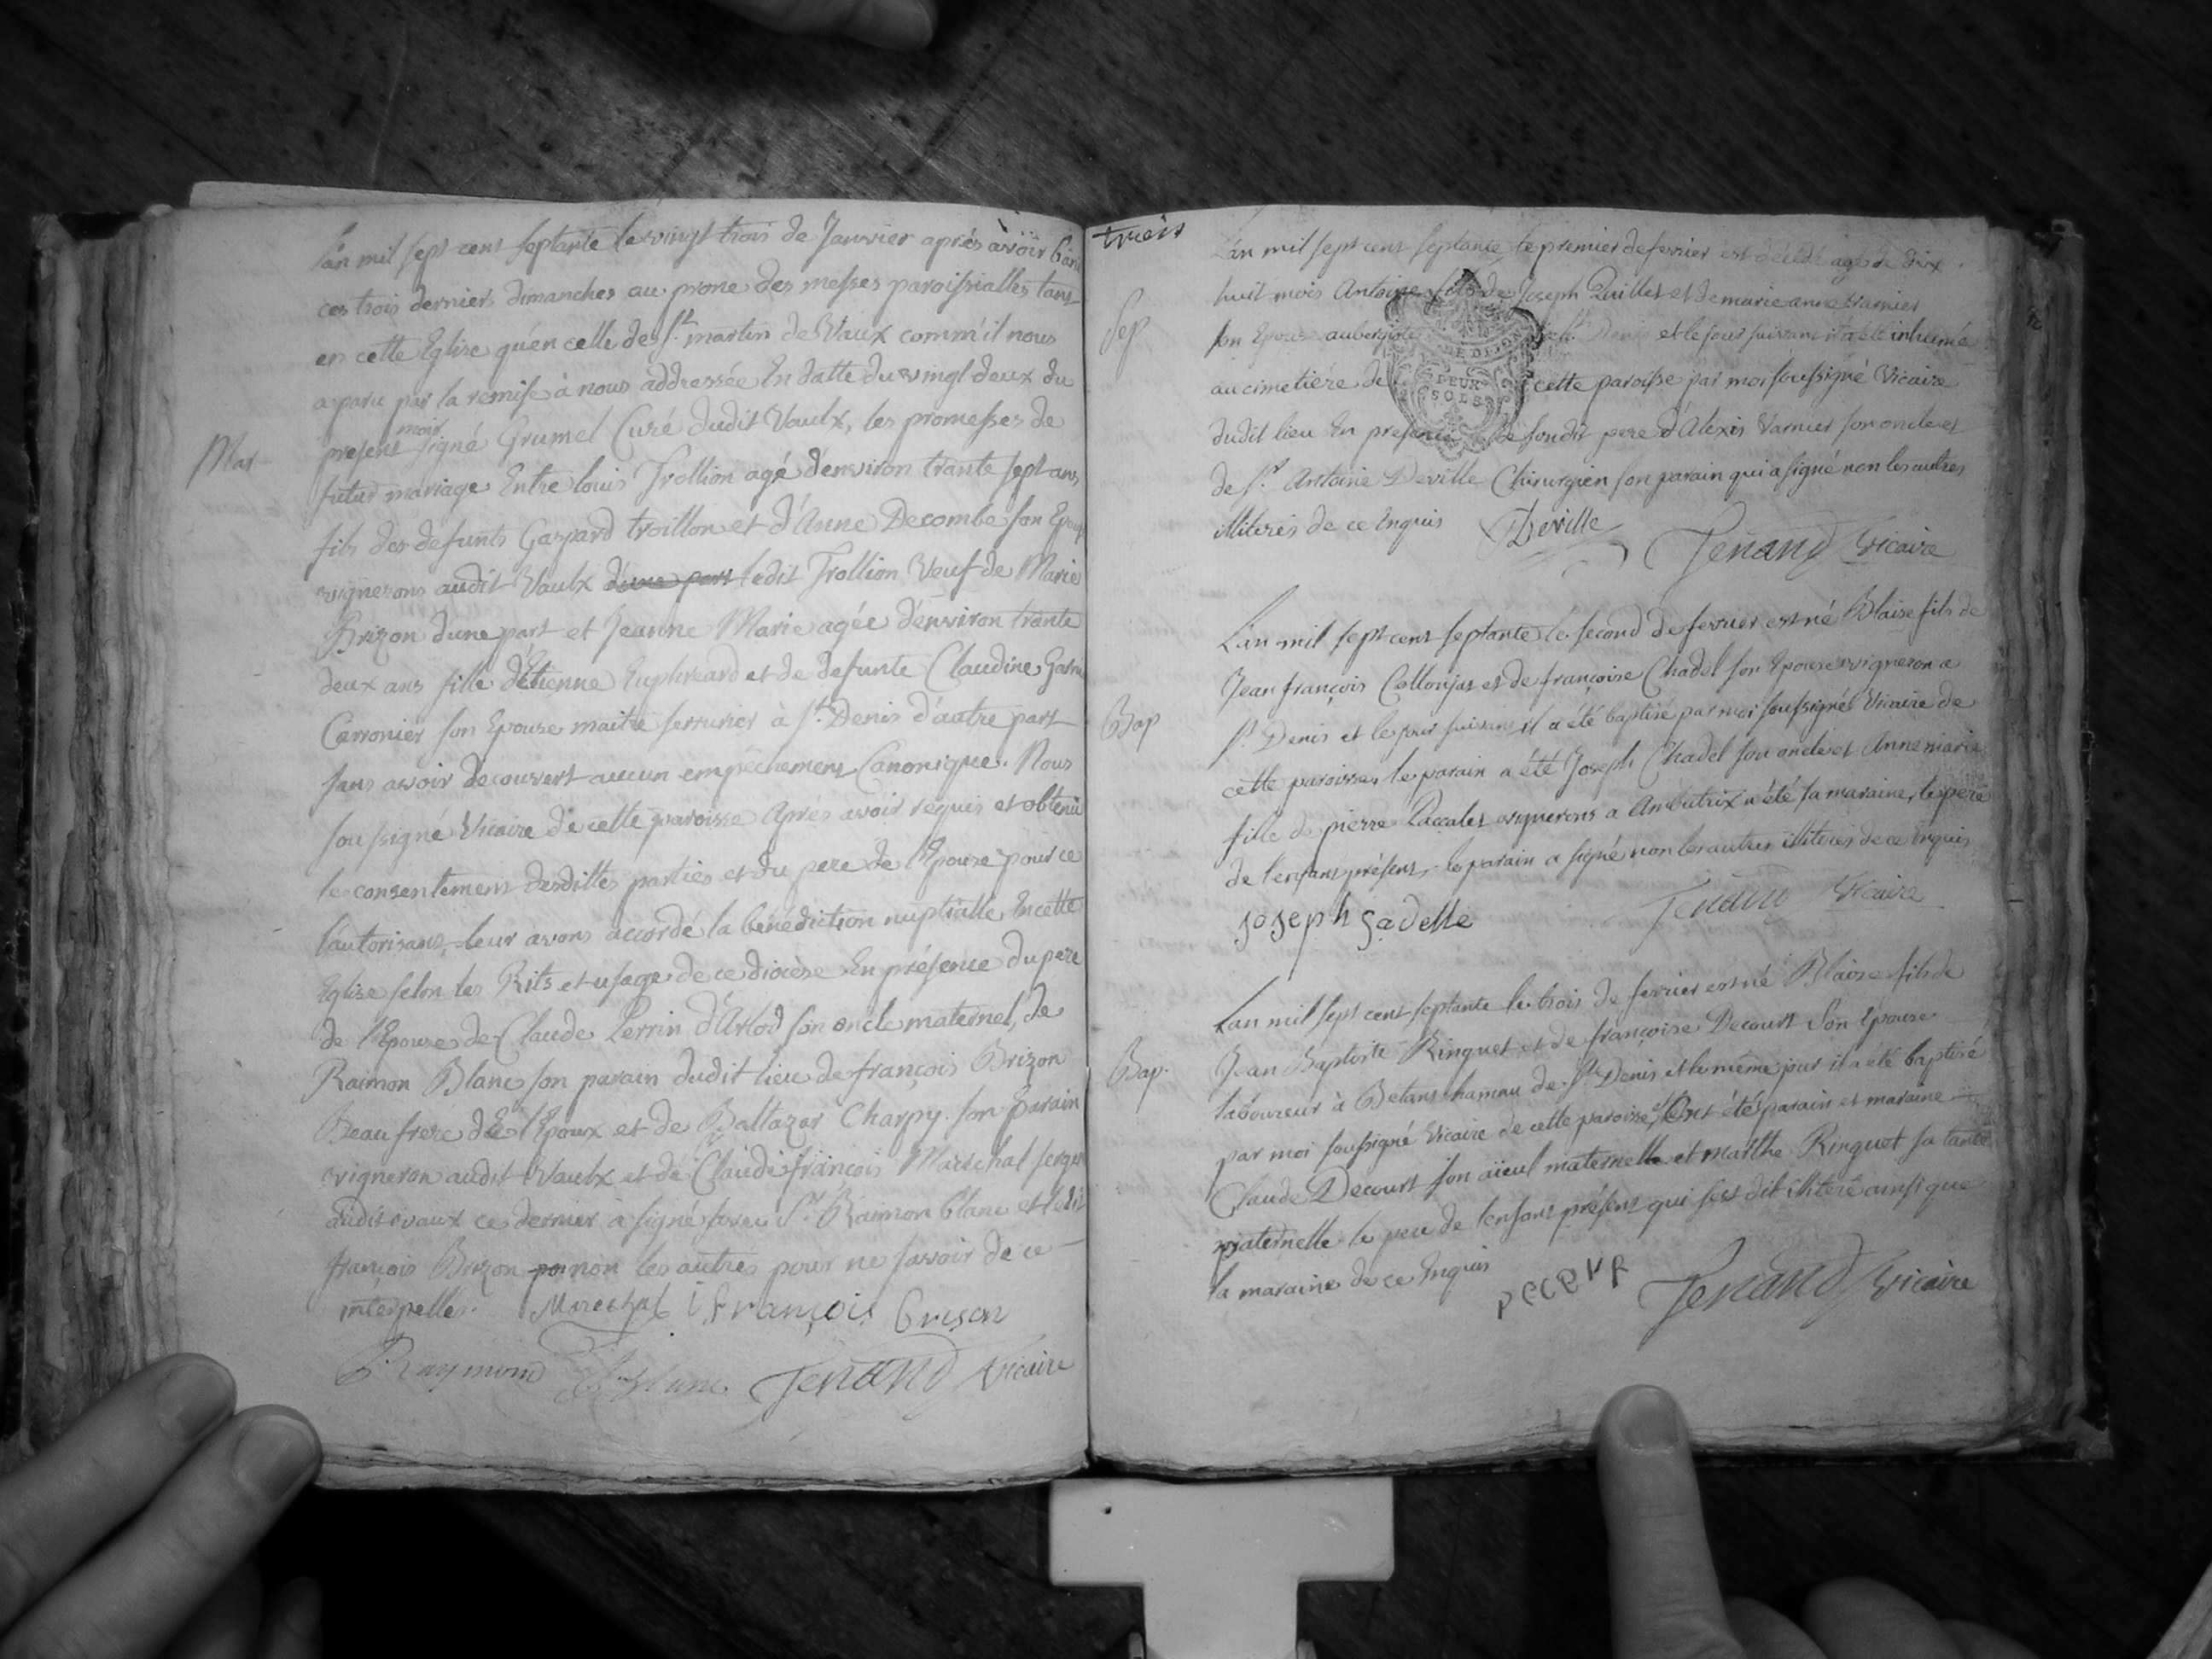 L'an mil sept cent septante le vingt trois de Janvier après avoir
ces trois derniers dimanches au prone des messes paroissialles tant
en cette Eglise qu'en celle de St. martin de Vaux comm'il nous
a paru par la remise à nous addressée En datte du vingt deux du
present mois signé Grumel Curé dudit Vaulx, les promesses de
Mar
futur mariage Entre louis Trollion agé d'environ trante sept ans
fils des defunts Gaspard troillon et d'Anne Decombe son Epouse
vignerons audit Vaulx d'une part ledit Trollion Veuf de Marie
Brizon d'une part et Jeanne Marie agée d'environ trante
deux ans fille d'Etienne Euphreard et de defunte Claudine
Carronier son Epouse maitre serrurier à St. Denis d'autre part
sans avoir decouvert aucun empêchement Canonique. Nous
soussigné Vicaire de cette paroisse Après avoir requis et obtenu
le consentement desdittes parties et du pere de l'Epouse pour ce
l'autorisant, leur avons accordé la bénédiction nuptialle En cette
Eglise selon les Rits et usage de ce diocèse En présence du pere
de l'Epouse de Claude Perrin d'Arlod son oncle maternel, de
Raimon Blanc son parain dudit lieu de françois Brizon
Beaufrere de l'Epoux et de Baltazar Charpy son parain
vigneron audit Vaulx et de Claude françois Maréchal
audit vaux ce dernier à signé avec Sr. Raimon blanc et ledit
françois Brizon non les autres pour ne savoir de ce
interpellés. Mareschal françois brison
Raymond Blanc Tenand Vicaire
trois
L'an mil sept cent septante le premier de fevrier est décédé agé de dix
huit mois Antoine fils de Joseph Quillet et de marie anne Varnier
Sep
son Epouse aubergiste St. Denis et le jour suivant il a été inhumé
DE DIJON
au cimetière de cette paroisse par moi soussigné Vicaire
DEUX
SOLS
dudit lieu En presence de sondit pere d'Alexis Varnier son oncle et
de Sr. Antoine Deville Chirurgien son parain qui a signé non les autres
illiterés de ce Enquis Deville Tenand Vicaire
L'an mil sept cent septante le second de fevrier est né Blaise fils de
Jean françois Collonjat et de françoise Chadel son Epouse vigneron a
Bap
St. Denis et le jour suivant il a été baptisé par moi soussigné Vicaire de
cette paroisse, le parain a été Joseph Chadel son oncle et Anne marie
fille de pierre Laccales vignerons a Ambutrix a été sa maraine, le pere
de l'enfant présent, le parain a signé non les autres illiterés de ce Enquis
joseph Sadelle Tenand Vicaire
L'an mil sept cent septante le trois de fevrier est né Blaise fils de
Jean Baptiste Ringuet et de françoise Decourt Son Epouse
Bap.
laboureur à Betans hameau de St. Denis et le même jour il a été baptisé
par moi soussigné Vicaire de cette paroisse, Ont été parain et maraine
Claude Decourt son aïeul maternelle et marthe Ringuet sa tante
paternelle le pere de l'enfant présent qui s'est dit illiteré ainsi que
la maraine de ce Enquis Tenand Vicaire